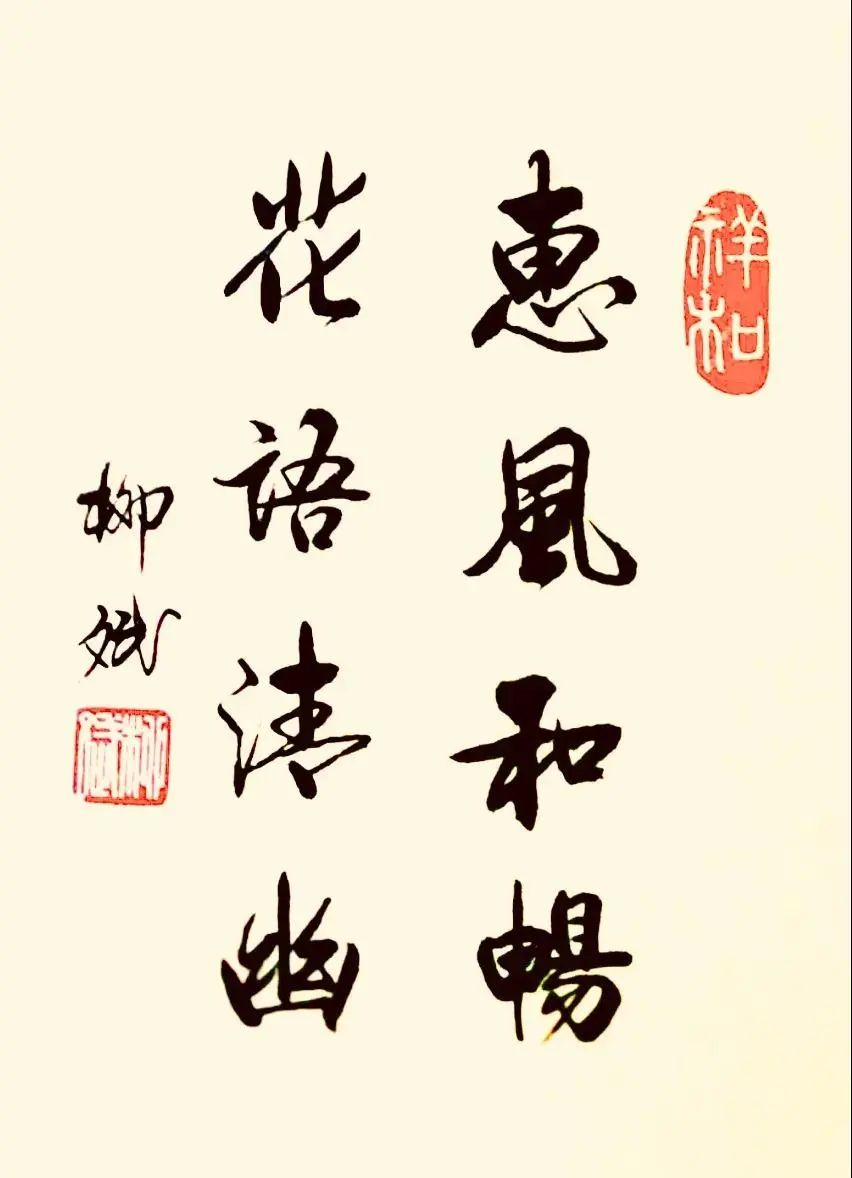 祥和
惠風和暢
花語清幽
柳斌